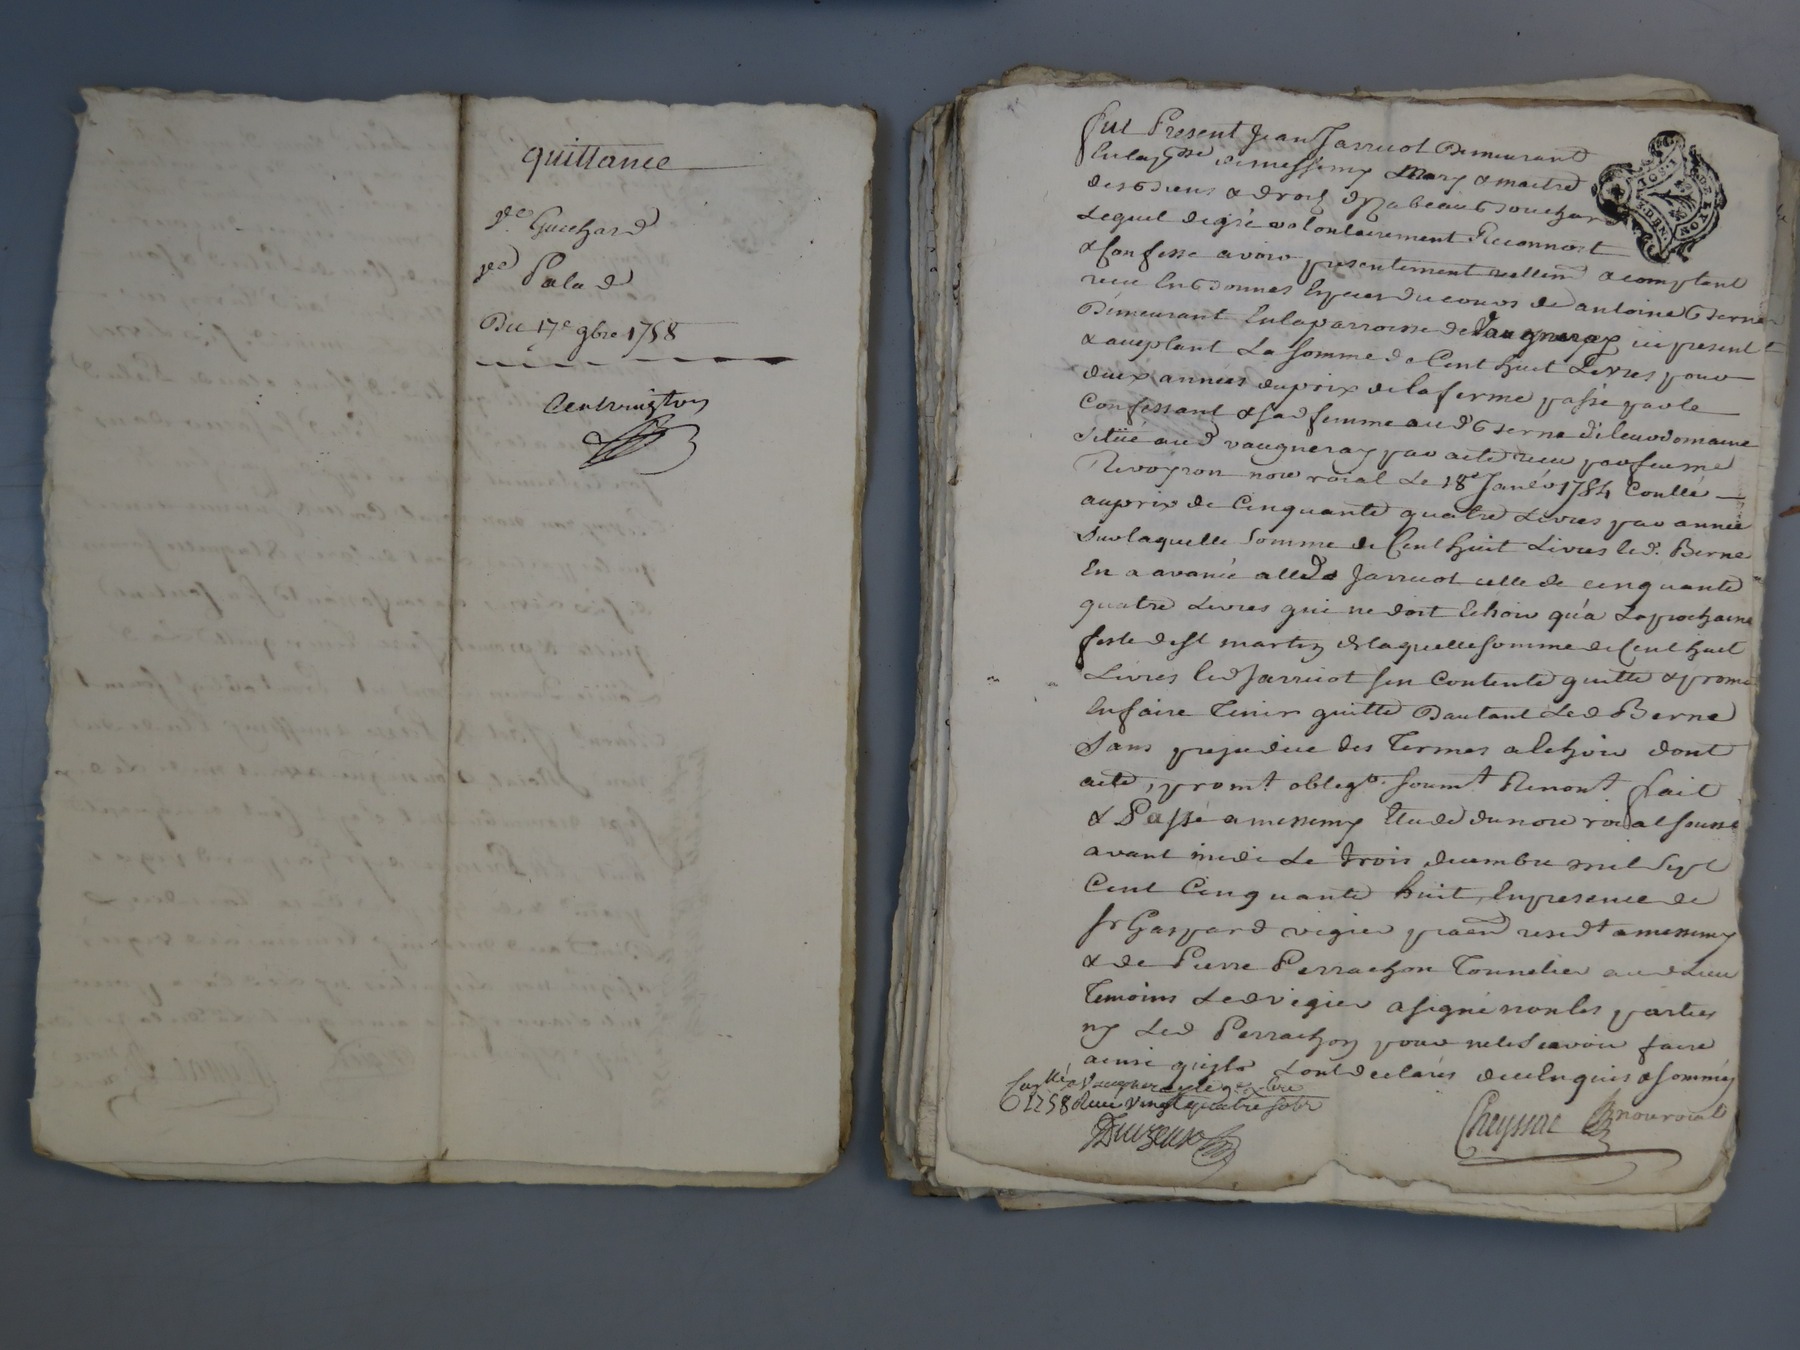 quittance
Guichard
Palad
Du 17e 9bre 1758
Fut Present Jean Jarricot Demeurant
En la psse de messimy Mary & maitre
des Biens & droits d'Izabeau Bouchar
Lequel de gré volontairement Reconnoit
& Confesse avoir presentement reellemt & comptant
receu En Bonnes Especes du cours de antoine Berne
Demeurant En la parroisse de Vaugneray ici present
& acceptant La somme de Cent huit Livres pour
deux années du prix de la ferme passé par le
Confessant & sa femme aud Berne de leur domaine
situé aud vaugneray par acte receu par feu me
Revoyron nore roial Le 18e Janer 1754 Conllé
au prix de Cinquante quatre Livres par année
Sur laquelle Somme de Cent huit Livres led. Berne
En a avancé alled Jarricot celle de cinquante
quatre Livres qui ne doit Echoir qu'a La prochaine
feste de St martin de laquelle somme de Cent huit
Livres led Jarricot sen Contente quitte & prome
En faire Tenir quitte Dautant Led Berne
Sans prejudice des Termes a Echoir dont
acte, promt. obligon. soumt. Renont. fait
& Passé a messimy Etude du nore roial soussé
avant midi Le trois decembre mil sept
Cent Cinquante huit, En presence de
Sr Gaspard vigier pratn residt a messimy
& de Pierre Perrachon Tonnelier aud Lieu
Temoins Led vigier a signé non les parties
ny Led Perrachon pour ne le Scavoir faire
ainsi quils Lont declarés de ce Enquis & sommés
Conllé a Vaugneray le 9e xbre
1758 Receu vingt quatre sols
Cheyssac nore roial